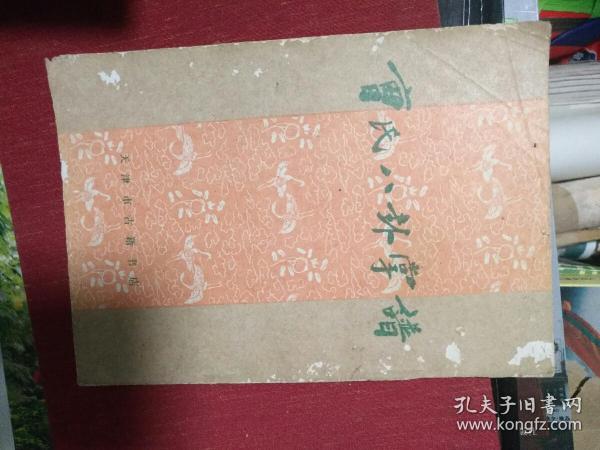 曹氏八卦掌譜
天津市古籍书店
孔夫子旧书网
www.kongfz.com